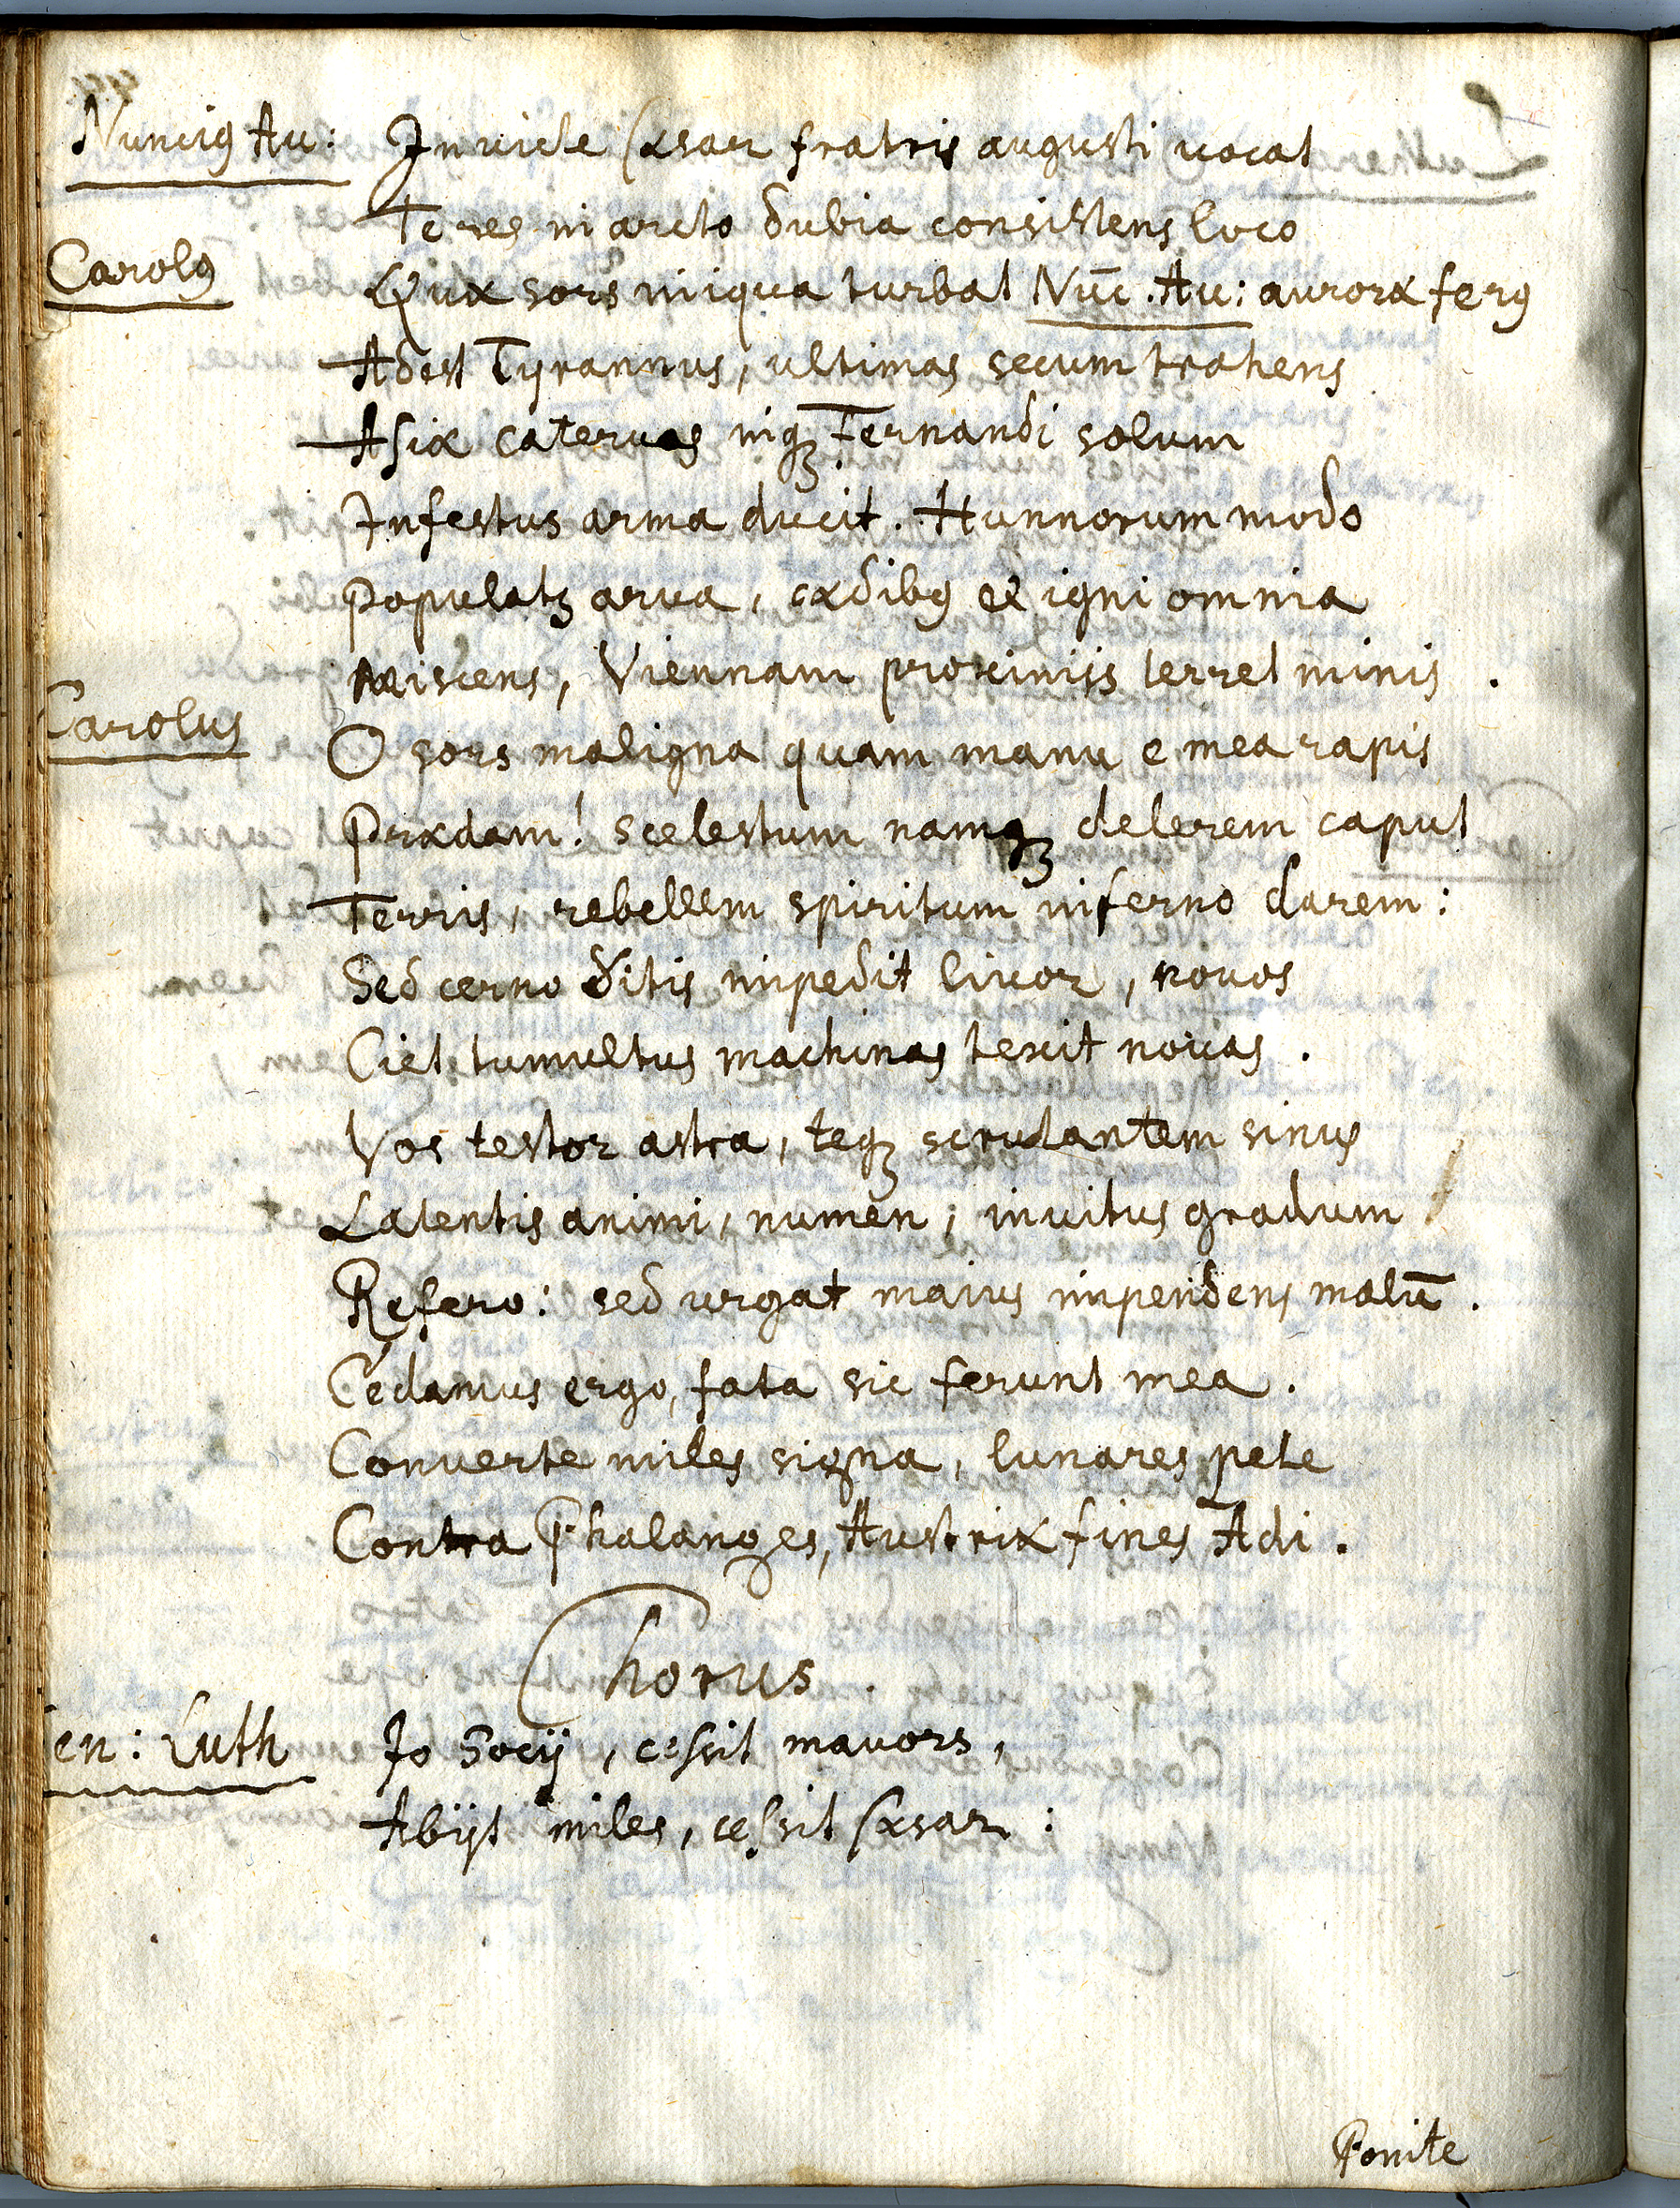 Nunciꝰ Au: Inuicte Cæsar fratris augusti uocat
Te res in arcto dubia consistens loco
Carolꝰ Quæ sors iniqua turbat Nūc. Au: auroræ ferꝰ
Adest Tyrannus, ultimas secum trahens
Asiæ cateruas inqꝫ Fernandi solum
Infestus arma ducit. Hunnorum modo
Populatꝫ arua, cædibꝰ et igni omnia
Miscens, Viennam proximis terret minis.
Carolus O sors maligna quam manu e mea rapis
Prædam! scelestum namqꝫ delerem caput
Terris, rebellem spiritum inferno darem:
Sed cerno ditis impedit liuor, nouos
Ciet tumultus machinas texit nouas.
Vos testor astra, teqꝫ scrutantem sinus
Latentis animi, numen, inuitus gradum
Refero: sed urgat maius impendens malū.
Cedamus ergo, fata sic ferunt mea.
Conuerte miles signa, lunares pete
Contra Phalanges, Austriæ fines Adi.
Chorus.
en: Luth Io Socij, cessit mauors,
Abijt miles, cessit Cæsar:
Ponite